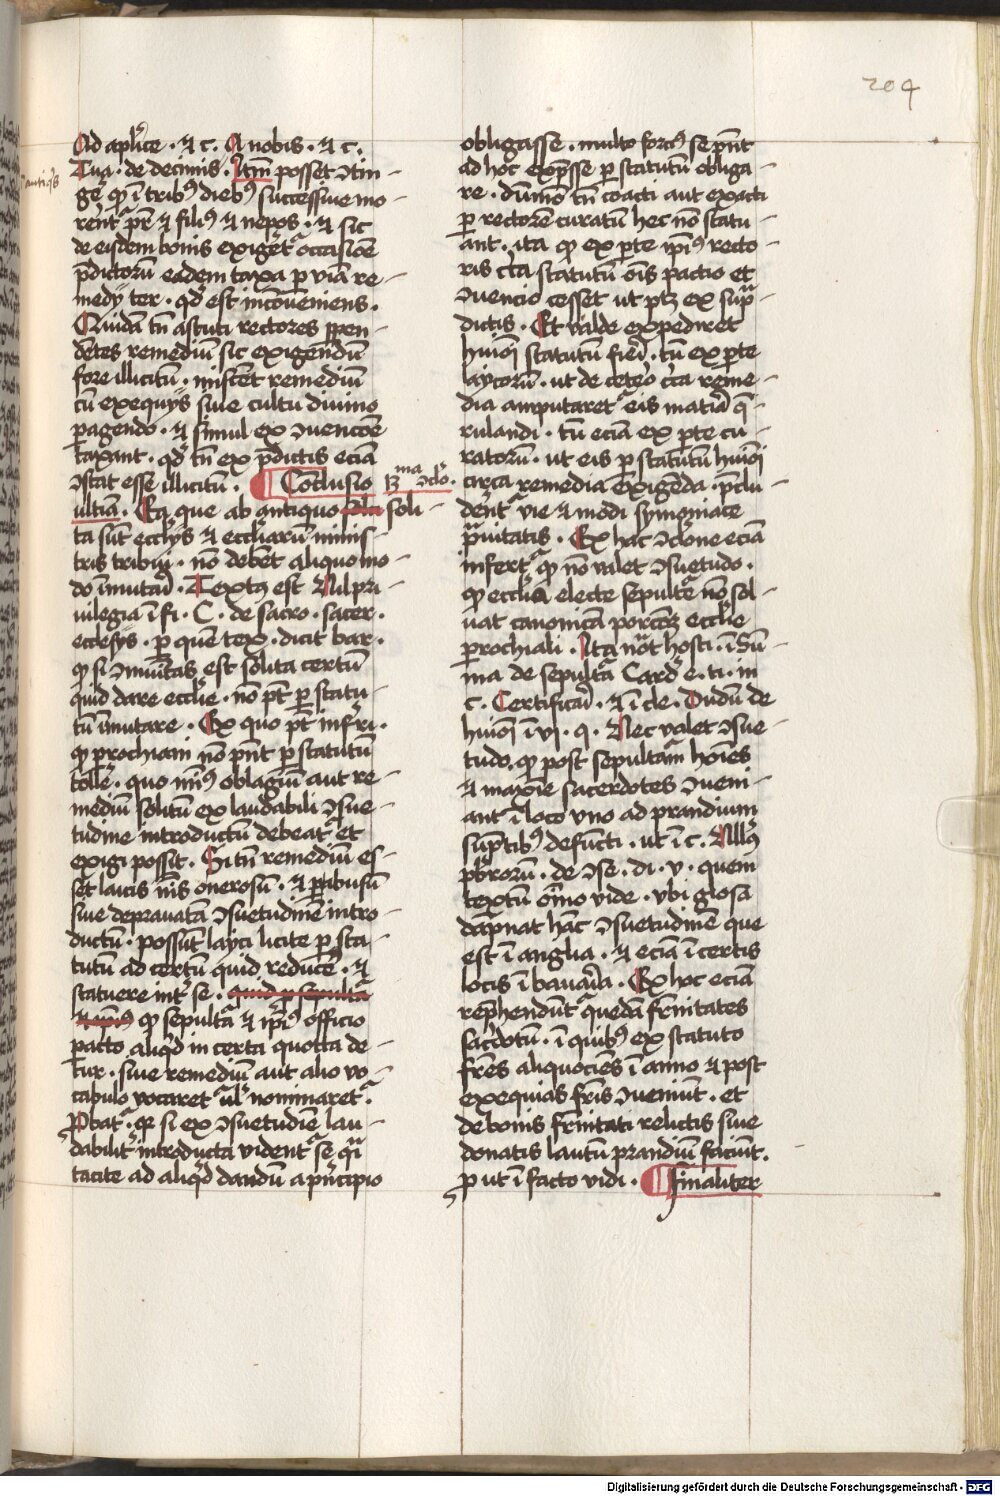 204
Ad aplice · ⁊ c. A nobis · ⁊ c.
Tua · de decimis · Itm̄ posset ɔtin-
antiqs
gē qp ī tribꝰ diebꝰ successiue mo-
rent̄ pr̄ ⁊ filiꝰ ⁊ nepos · ⁊ sic
de eisdem bonis exiget̄ occasiōe
p̄dictorū eadem taxa ꝑ viā re-
medy ter · qd̄ est incōueniens ·
Quidā tn̄ astuti rectores ꝑpen-
dētes remediū sic exigendū
fore illicitū · miscēt remediū
cū exequijs siue cultu diuino
ꝑagendo · ⁊ simul ex ɔuencōe
taxant · qd̄ tn̄ ex p̄dictis eciā
ɔstat esse illicitū · Conclusio
ma ɔclo ·
ultīa · Ea que ab antiquo soli-
ta sūt ecclijs ⁊ eccliarū minis-
tris tribui · non debēt aliquo mo-
do īmutari · Textꝰ est Nul pri
uilegia ī fi · C · de sacro · sacer ·
ecclesijs · ꝑ quē tex · dicit bar ·
qp si ɔmuītas est solita certū
quid dare ecclīe · nō pt̄ ꝑ statu-
tū īmutare · Ex quo pt̄ infri ·
qp prochiani nō pn̄t ꝑ statutū
tollē · quo minꝰ oblagiū aut re-
mediū solitū ex laudabili ɔsue-
tudine introductū debeat̄ et
exigi possit · Si tn̄ remediū es-
set laicis nīs onerosū · ⁊ ꝑ abusū
siue deprauatā ɔsuetudinē intro-
ductū · possūt layci licite ꝑ sta-
tutū ad certū quid reducē · ⁊
statuere int̄ se · quid ꝓ sepultā
qp sepultā ⁊ ip̄iꝰ officio
pacto aliqd in certa quotta de-
tur · siue remediū aut alio vo-
cabulo vocaret̄ ul nominaret̄ ·
ꝓbat̄ · qꝛ si ex ɔsuetudīe lau-
dabilit̄ introducta vident̄ se qͣi
tacite ad aliqd dandū a pn̄cipio
obligasse · multo forciꝰ se pn̄t
ad hoc exp̄sse ꝑ statutū obliga-
re · dūmō tn̄ coacti aut exacti
ꝑ rectorē curatū hec nō statu-
ant · ita qp ex ꝑte ip̄iꝰ recto-
ris cͣca statutū oīs pactio et
ɔuencio cesset ut ptꝫ ex supͣ-
dictis · Et valde expediret
huiōi statutū fieri · tū ex ꝑte
laycorū · ut de ceteͦ cͣca reme-
dia amputaret̄ eis matia q̄-
rulandi · tū eciā ex ꝑte cu-
ratorū · ut eis ꝑ statutū huiōi
circa remedia exigēda · p̄clu-
dent̄ vie ⁊ modi symoniace
prauitatis · Ex hac ɔclone eciā
infert̄ qp nō valet ɔsuetudo ·
qp ecclīa electe sepultē nō sol-
uat canonicā porcōeꝫ ecclīe
prochiali · Ita not̄ hosti · ī Sū-
ma de sepultā Card e · ti · in
c · Certificari · ⁊ ī cle · Dudū de
huiōi ī vi · q · Nec valet ɔsue-
tudo · qp post sepultām hoīes
⁊ maxīe sacerdotes ɔueni-
ant ī loco vno ad prandium
sūptibꝰ defūcti · ut ī c · Nullꝰ
pb̄rorū · de ɔse · di · v · quem
textū oīno vide · vbi glosa
dāpnat hāc ɔsuetudinē que
est ī anglia · ⁊ eciā ī certis
locis ī bauaria · Ex hoc eciā
rep̄hendūt̄ quedā frnitates
sacͥdotū · ī quibꝰ ex statuto
frēs aliquociēs ī anno ⁊ post
exequias fris ɔueniūt · et
de bonis frnitati relictis siue
donatis lautū prandiū faciūt ·
ꝓ ut ī facto vidi · Finaliter
Digitalisierung gefördert durch die Deutsche Forschungsgemeinschaft - DFG